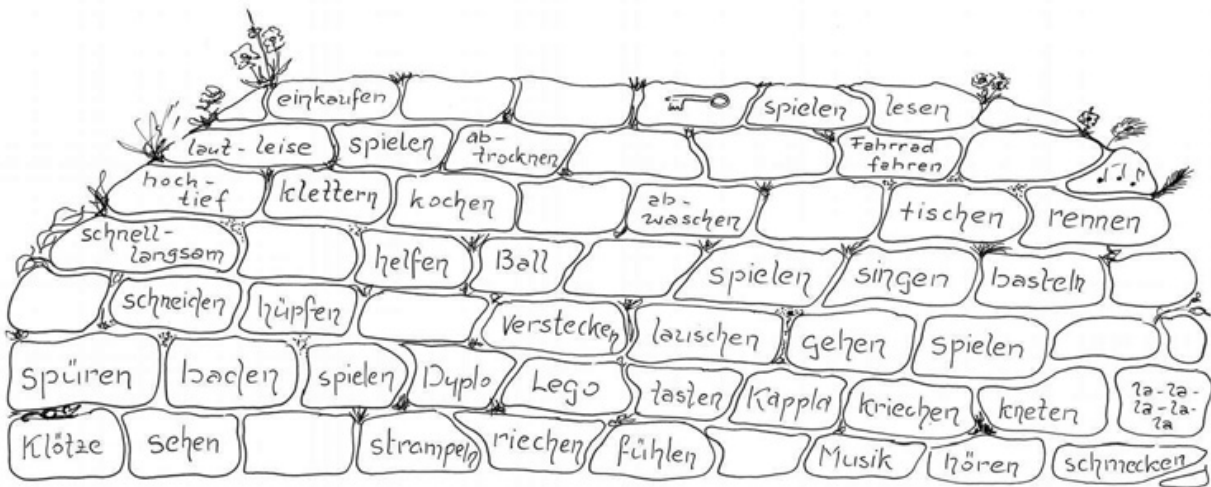 einkaufen spielen lesen
laut-leise spielen ab-
trocknen Fahrrad
fahren
hoch-
tief klettern kochen ab-
waschen tischen rennen
schnell-
langsam helfen Ball spielen singen basteln
schneiden hüpfen verstecken lauschen gehen spielen
spüren baden spielen Duplo Lego tasten Kappla kriechen kneten la-la-
la-la-
la
Klötze sehen strampeln riechen fühlen Musik hören schmecken